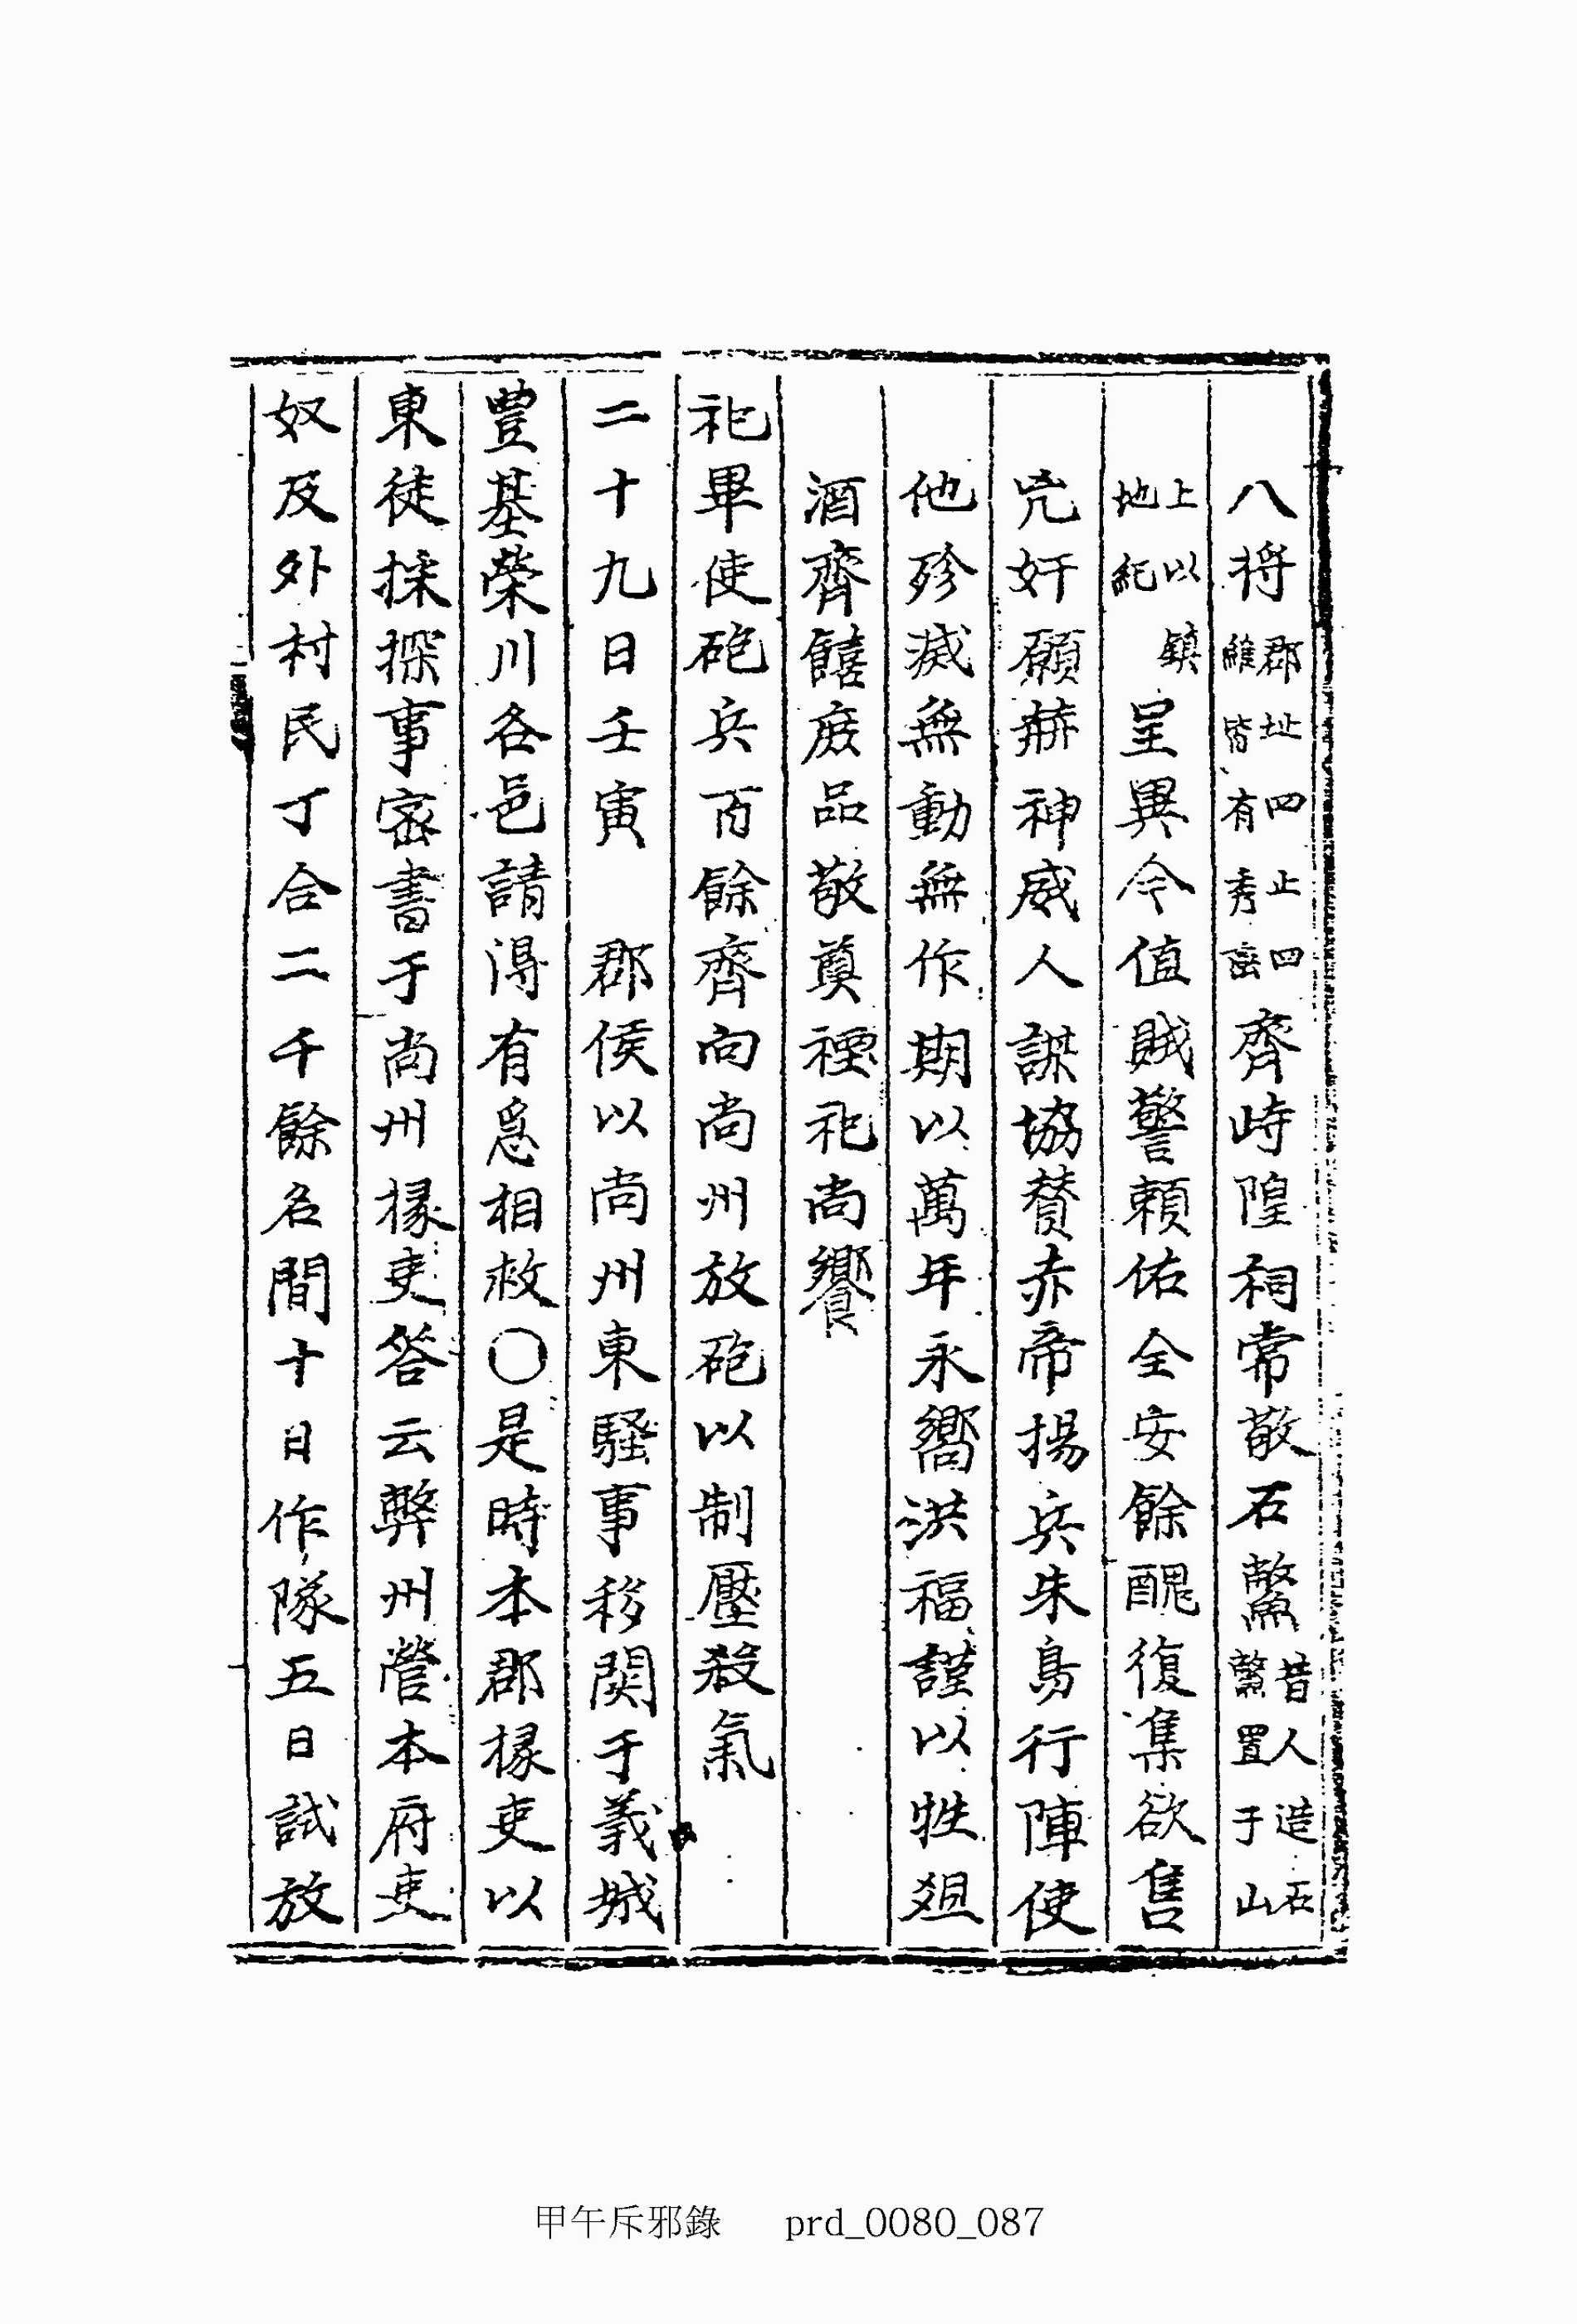 八将郡址四止四維皆有秀峦齊峙隍祠常敬石鰲昔人造石鰲置于山
上以鎮地紀呈異今值賊警頼佑全安餘醜復集欲售
兇奸願赫神威人謀協賛赤帝揚兵朱鳥行陣使
他殄滅無動無作期以萬年永嚮洪福謹以牲爼
酒齊饎庶品敬奠禋祀尚饗
祀畢使砲兵百餘齊向尚州放砲以制壓殺氣
二十九日壬寅 郡侯以尚州東騷事移関于義城
豊基榮川各邑請淂有急相救〇是時本郡掾吏以
東徒採探事密書于尚州掾吏答云弊州營本府吏
奴及外村民丁合二千餘名間十日作隊五日試放
甲午斥邪錄 prd_0080_087